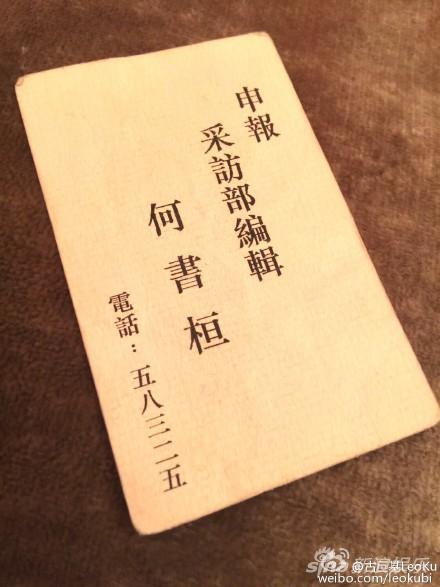 申報
采訪部編輯
何書桓
電話：五八三二五
新浪娱乐
@古巨基LeoKu
weibo.com/leokubi